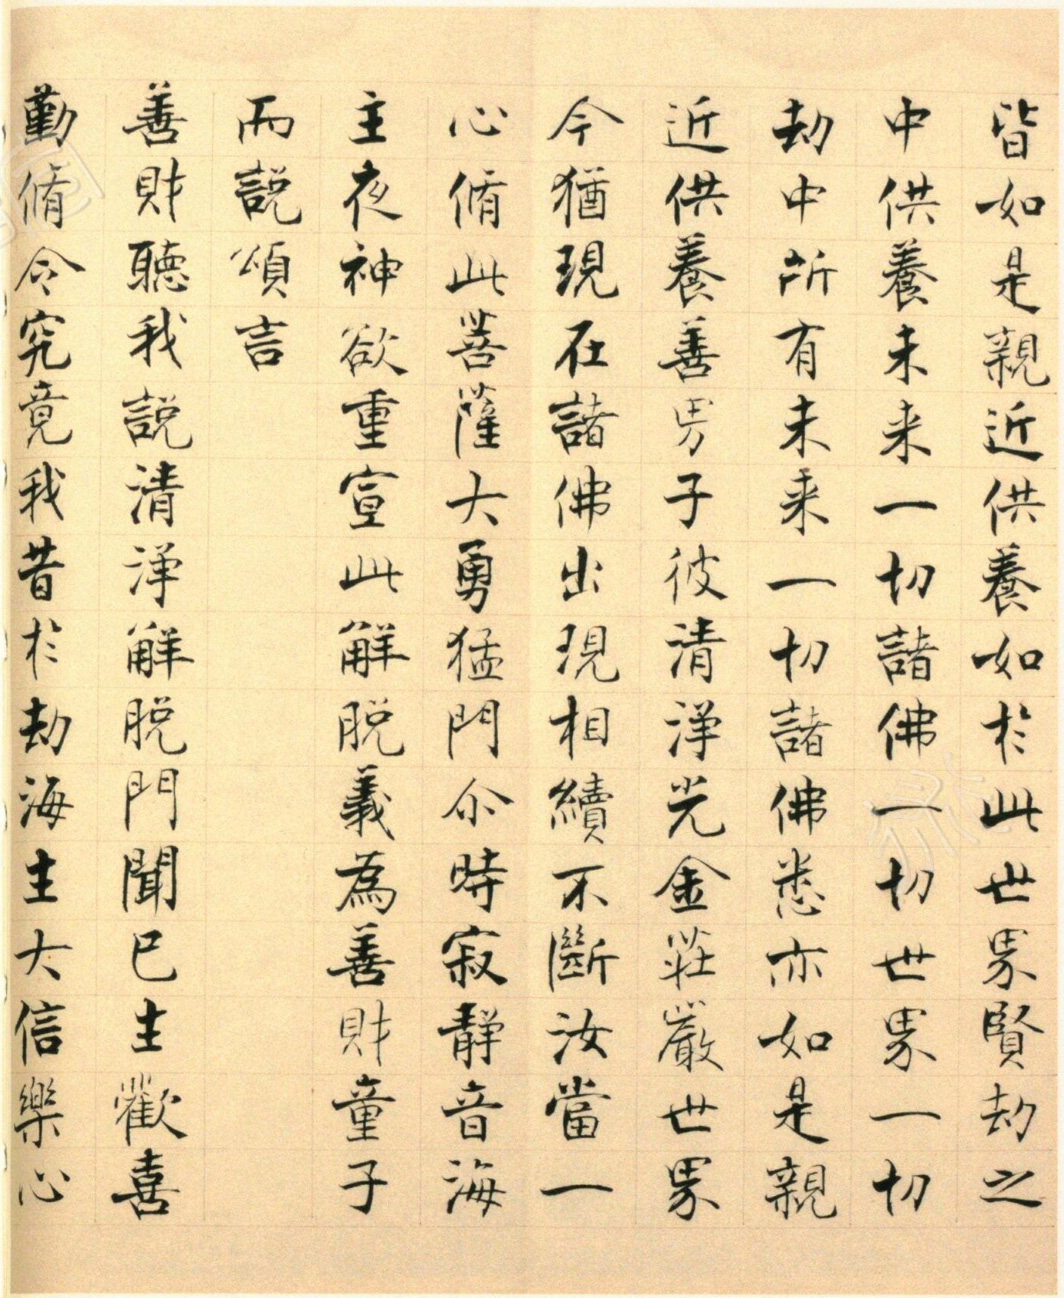 皆如是親近供養如於此世界賢劫之
中供養未来一切諸佛一切世界一切
劫中所有未来一切諸佛悉亦如是親
近供養善男子彼清淨光金莊嚴世界
今猶現在諸佛出現相續不斷汝當一
心脩此菩薩大勇猛門尒時寂靜音海
主夜神欲重宣此解脱義為善財童子
而說頌言
善財聽我說清淨解脱門聞已生歡喜
勤脩令究竟我昔於劫海生大信樂心